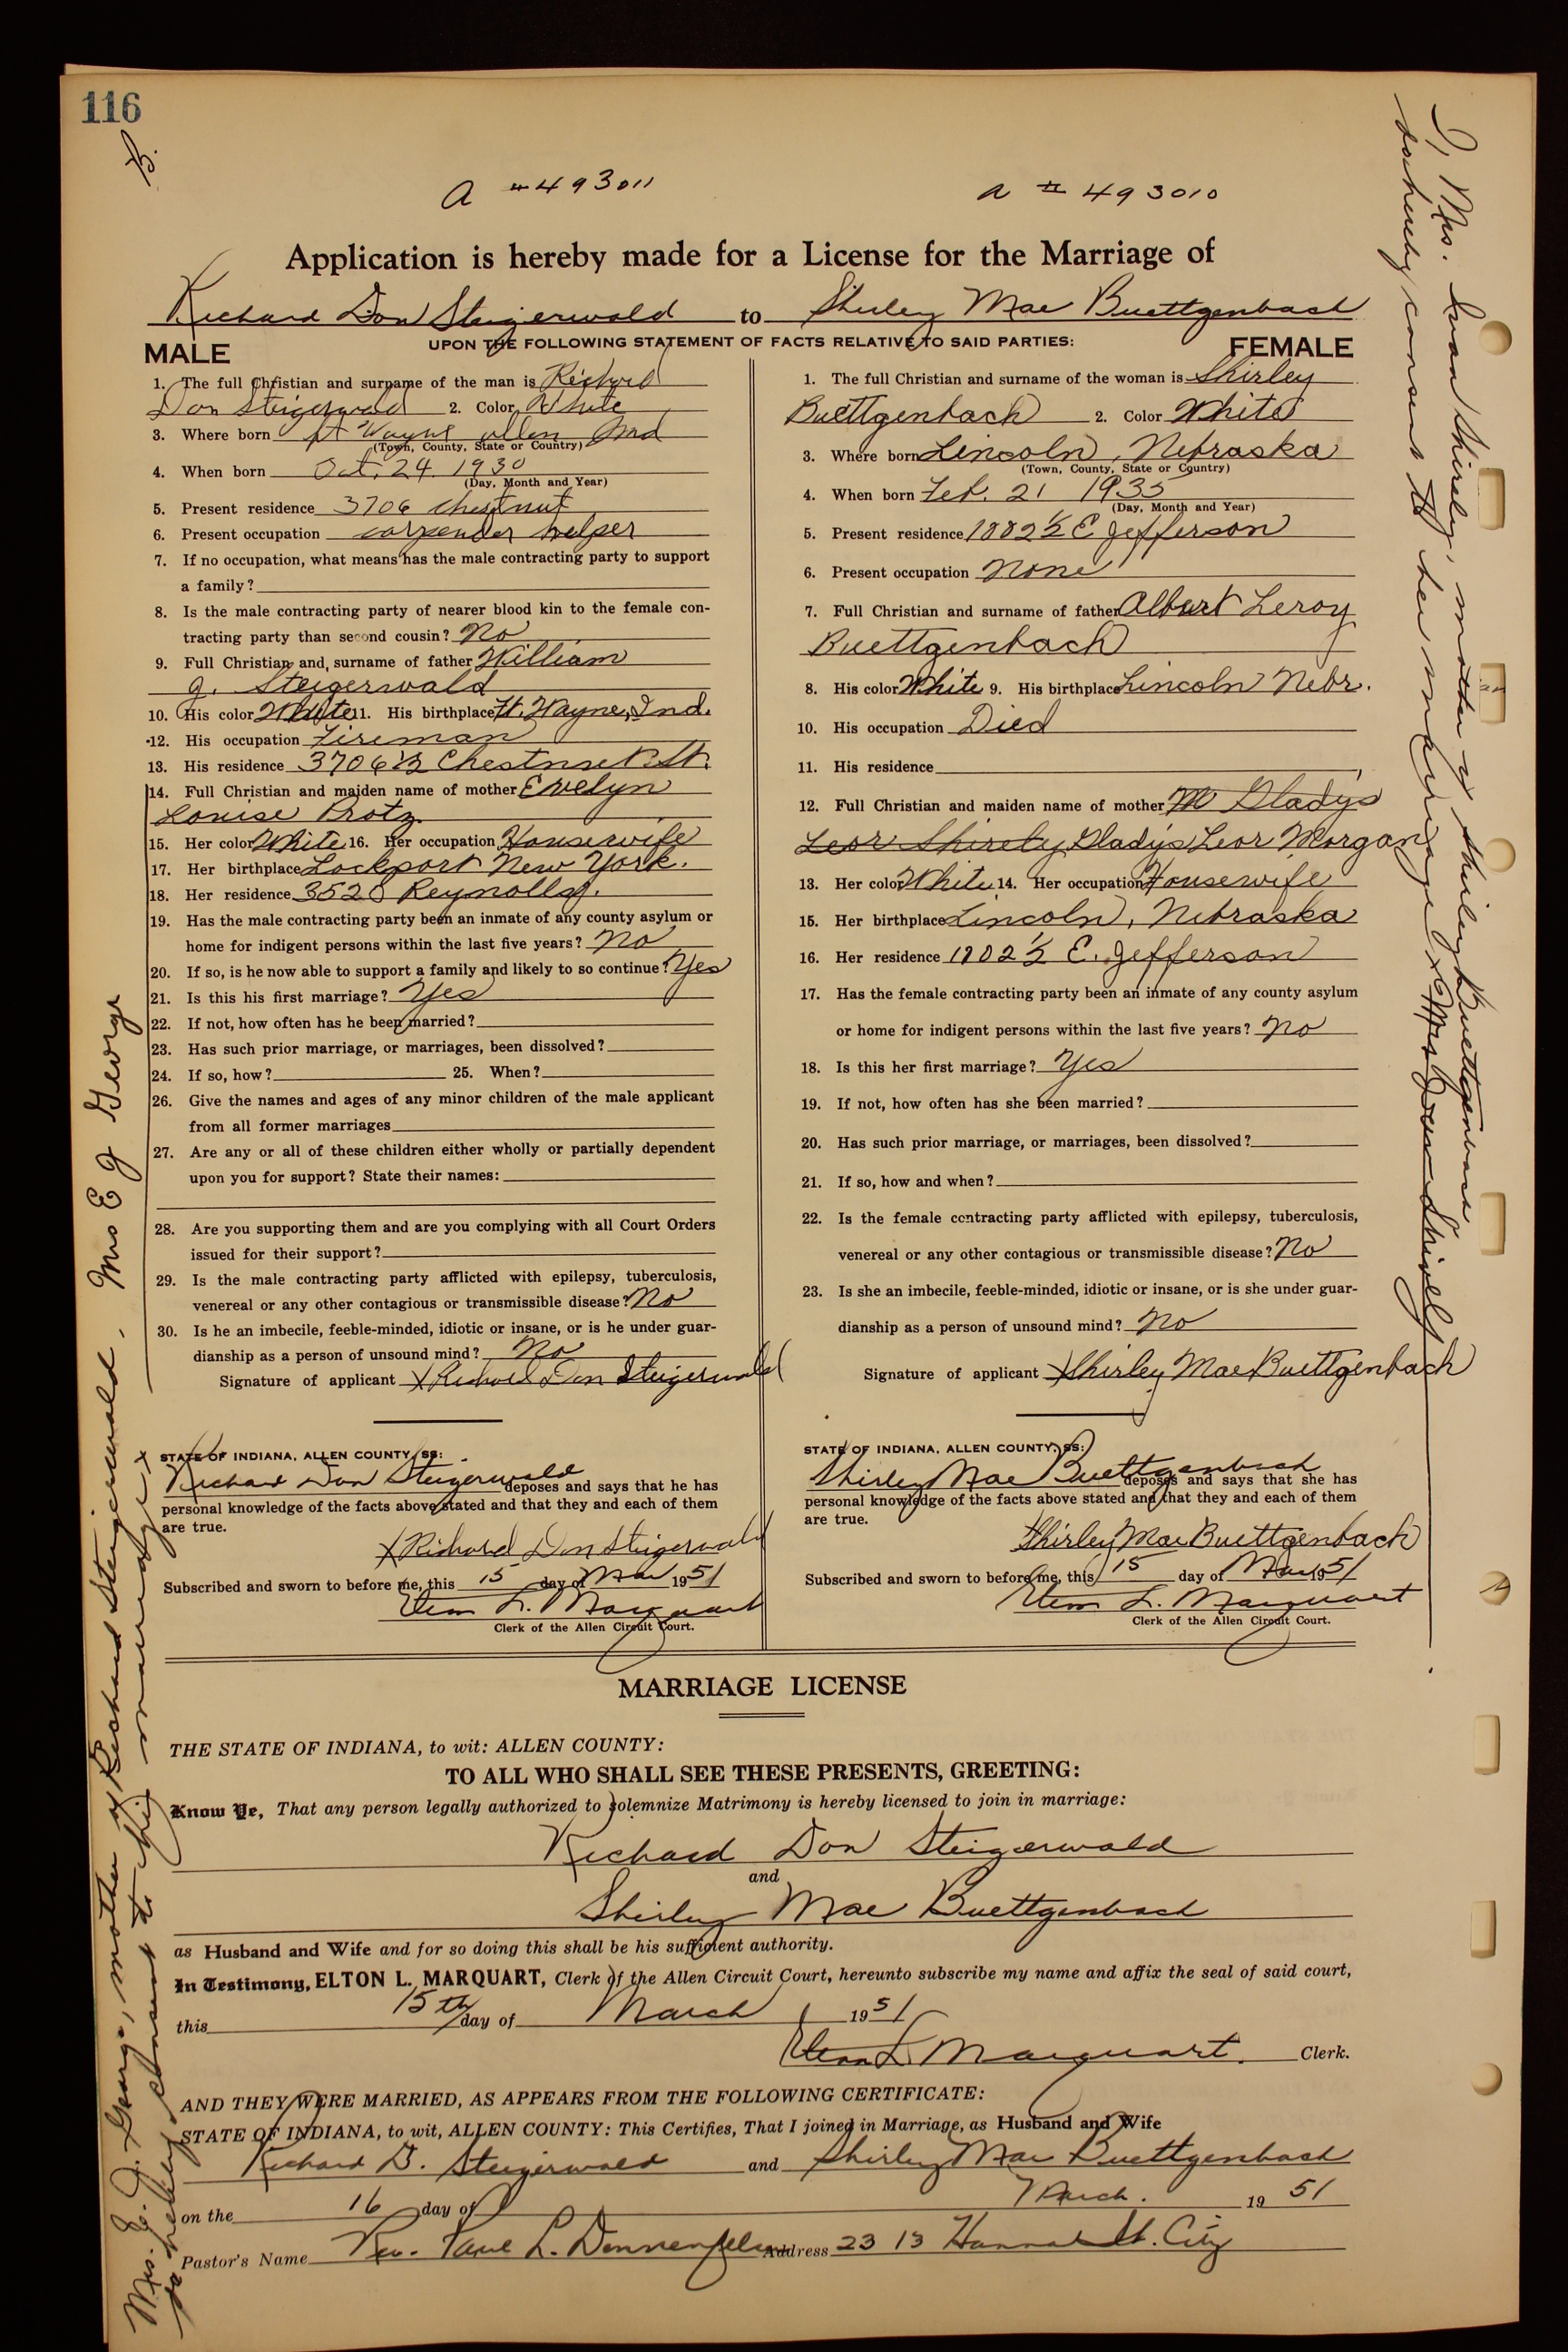 116
A #493011
A #493010
Application is hereby made for a License for the Marriage of
Richard Don Steigerwald to Shirley Mae Buettgenbach
UPON THE FOLLOWING STATEMENT OF FACTS RELATIVE TO SAID PARTIES:
MALE
1. The full Christian and surname of the man is Richard
Don Steigerwald 2. Color White
3. Where born Ft Wayne Allen Ind
(Town, County, State or Country)
4. When born Oct. 24. 1930
(Day, Month and Year)
5. Present residence 3706 Chestnut
6. Present occupation carpender helper
7. If no occupation, what means has the male contracting party to support
a family?
8. Is the male contracting party of nearer blood kin to the female con-
tracting party than second cousin? No
9. Full Christian and surname of father William
J. Steigerwald
10. His color White 11. His birthplace Ft. Wayne, Ind.
12. His occupation Fireman
13. His residence 3706 1/2 Chestnut St.
14. Full Christian and maiden name of mother Evelyn
Louise Protz
15. Her color White 16. Her occupation Housewife
17. Her birthplace Lockport New York.
18. Her residence 3528 Reynolds.
19. Has the male contracting party been an inmate of any county asylum or
home for indigent persons within the last five years? No
20. If so, is he now able to support a family and likely to so continue? Yes
21. Is this his first marriage? Yes
22. If not, how often has he been married?
23. Has such prior marriage, or marriages, been dissolved?
24. If so, how? 25. When?
26. Give the names and ages of any minor children of the male applicant
from all former marriages
27. Are any or all of these children either wholly or partially dependent
upon you for support? State their names:
28. Are you supporting them and are you complying with all Court Orders
issued for their support?
29. Is the male contracting party afflicted with epilepsy, tuberculosis,
venereal or any other contagious or transmissible disease? No
30. Is he an imbecile, feeble-minded, idiotic or insane, or is he under guar-
dianship as a person of unsound mind? No
Signature of applicant X Richard Don Steigerwald
STATE OF INDIANA, ALLEN COUNTY, SS:
Richard Don Steigerwald deposes and says that he has
personal knowledge of the facts above stated and that they and each of them
are true.
X Richard Don Steigerwald
Subscribed and sworn to before me, this 15 day of Mar 1951
Elton L. Marquart
Clerk of the Allen Circuit Court.
FEMALE
1. The full Christian and surname of the woman is Shirley
Buettgenbach 2. Color White
3. Where born Lincoln, Nebraska
(Town, County, State or Country)
4. When born Feb. 21 1935
(Day, Month and Year)
5. Present residence 1802 1/2 E Jefferson
6. Present occupation None
7. Full Christian and surname of father Albert Leroy
Buettgenbach
8. His color White 9. His birthplace Lincoln Nebr.
10. His occupation Died
11. His residence
12. Full Christian and maiden name of mother M Gladys
Leor Shirely Gladys Leor Morgan
13. Her color White 14. Her occupation Housewife
15. Her birthplace Lincoln, Nebraska
16. Her residence 1802 1/2 E. Jefferson
17. Has the female contracting party been an inmate of any county asylum
or home for indigent persons within the last five years? No
18. Is this her first marriage? Yes
19. If not, how often has she been married?
20. Has such prior marriage, or marriages, been dissolved?
21. If so, how and when?
22. Is the female contracting party afflicted with epilepsy, tuberculosis,
venereal or any other contagious or transmissible disease? No
23. Is she an imbecile, feeble-minded, idiotic or insane, or is she under guar-
dianship as a person of unsound mind? No
Signature of applicant X Shirley Mae Buettgenbach
STATE OF INDIANA, ALLEN COUNTY, SS:
Shirley Mae Buettgenbach deposes and says that she has
personal knowledge of the facts above stated and that they and each of them
are true.
Shirley Mae Buettgenbach
Subscribed and sworn to before me, this 15 day of Mar 1951
Elton L. Marquart
Clerk of the Allen Circuit Court.
MARRIAGE LICENSE
THE STATE OF INDIANA, to wit: ALLEN COUNTY:
TO ALL WHO SHALL SEE THESE PRESENTS, GREETING:
Know Ye, That any person legally authorized to solemnize Matrimony is hereby licensed to join in marriage:
Richard Don Steigerwald
and
Shirley Mae Buettgenbach
as Husband and Wife and for so doing this shall be his sufficient authority.
In Testimony, ELTON L. MARQUART, Clerk of the Allen Circuit Court, hereunto subscribe my name and affix the seal of said court,
this 15th day of March 1951
Elton L. Marquart. Clerk.
AND THEY WERE MARRIED, AS APPEARS FROM THE FOLLOWING CERTIFICATE:
STATE OF INDIANA, to wit, ALLEN COUNTY: This Certifies, That I joined in Marriage, as Husband and Wife
Richard D. Steigerwald and Shirley Mae Buettgenbach
on the 16 day of March. 1951
Pastor's Name Rev. Paul L. Address 2313 Hanna St. City
Mrs. E. J. George, mother of Richard Steigerwald,
do hereby consent to his marriage x
Mrs E J George
I, Mrs. Ivan Shirely, mother of Shirley Buettgenbach
do hereby consent to her marriage x Mrs Ivan Shively